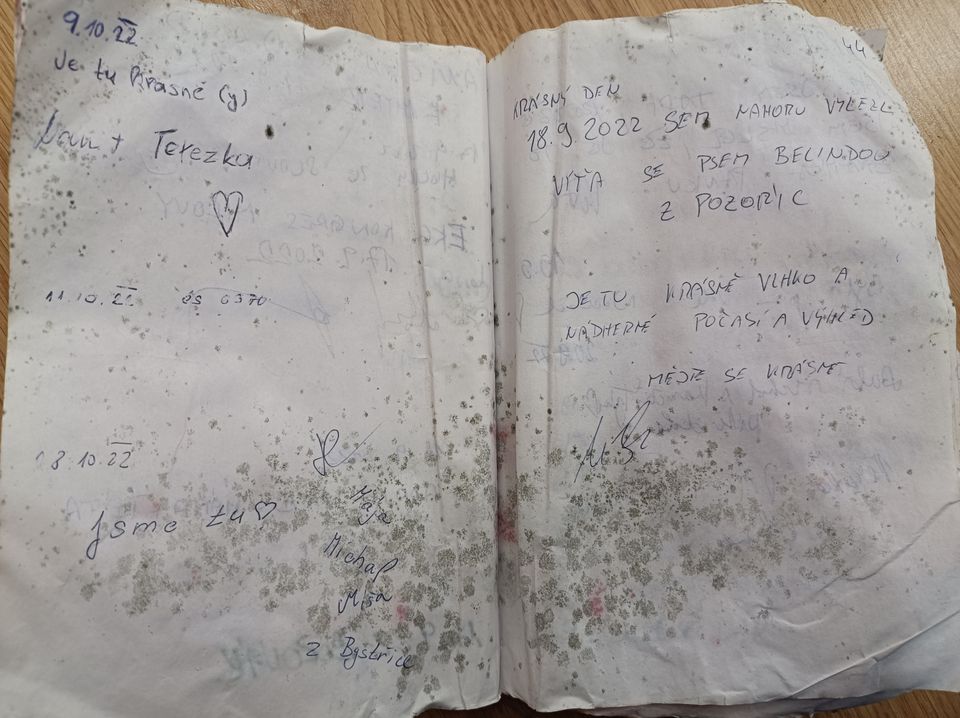 9.10.22
Je tu Krásně (y)
+ Terezka
11.10.22
18.10.22
Jsme tu
Mája
Michal
Míša
z Bystřice
44
KRÁSNÝ DEN
18.9.2022 SEM NAHORU VYLEZL
VÍŤA SE PSEM BELINDOU
Z POZOŘIC
JE TU KRÁSNĚ VLHKO A
NÁDHERNÉ POČASÍ A VÝHLED
MĚJTE SE KRÁSNĚ